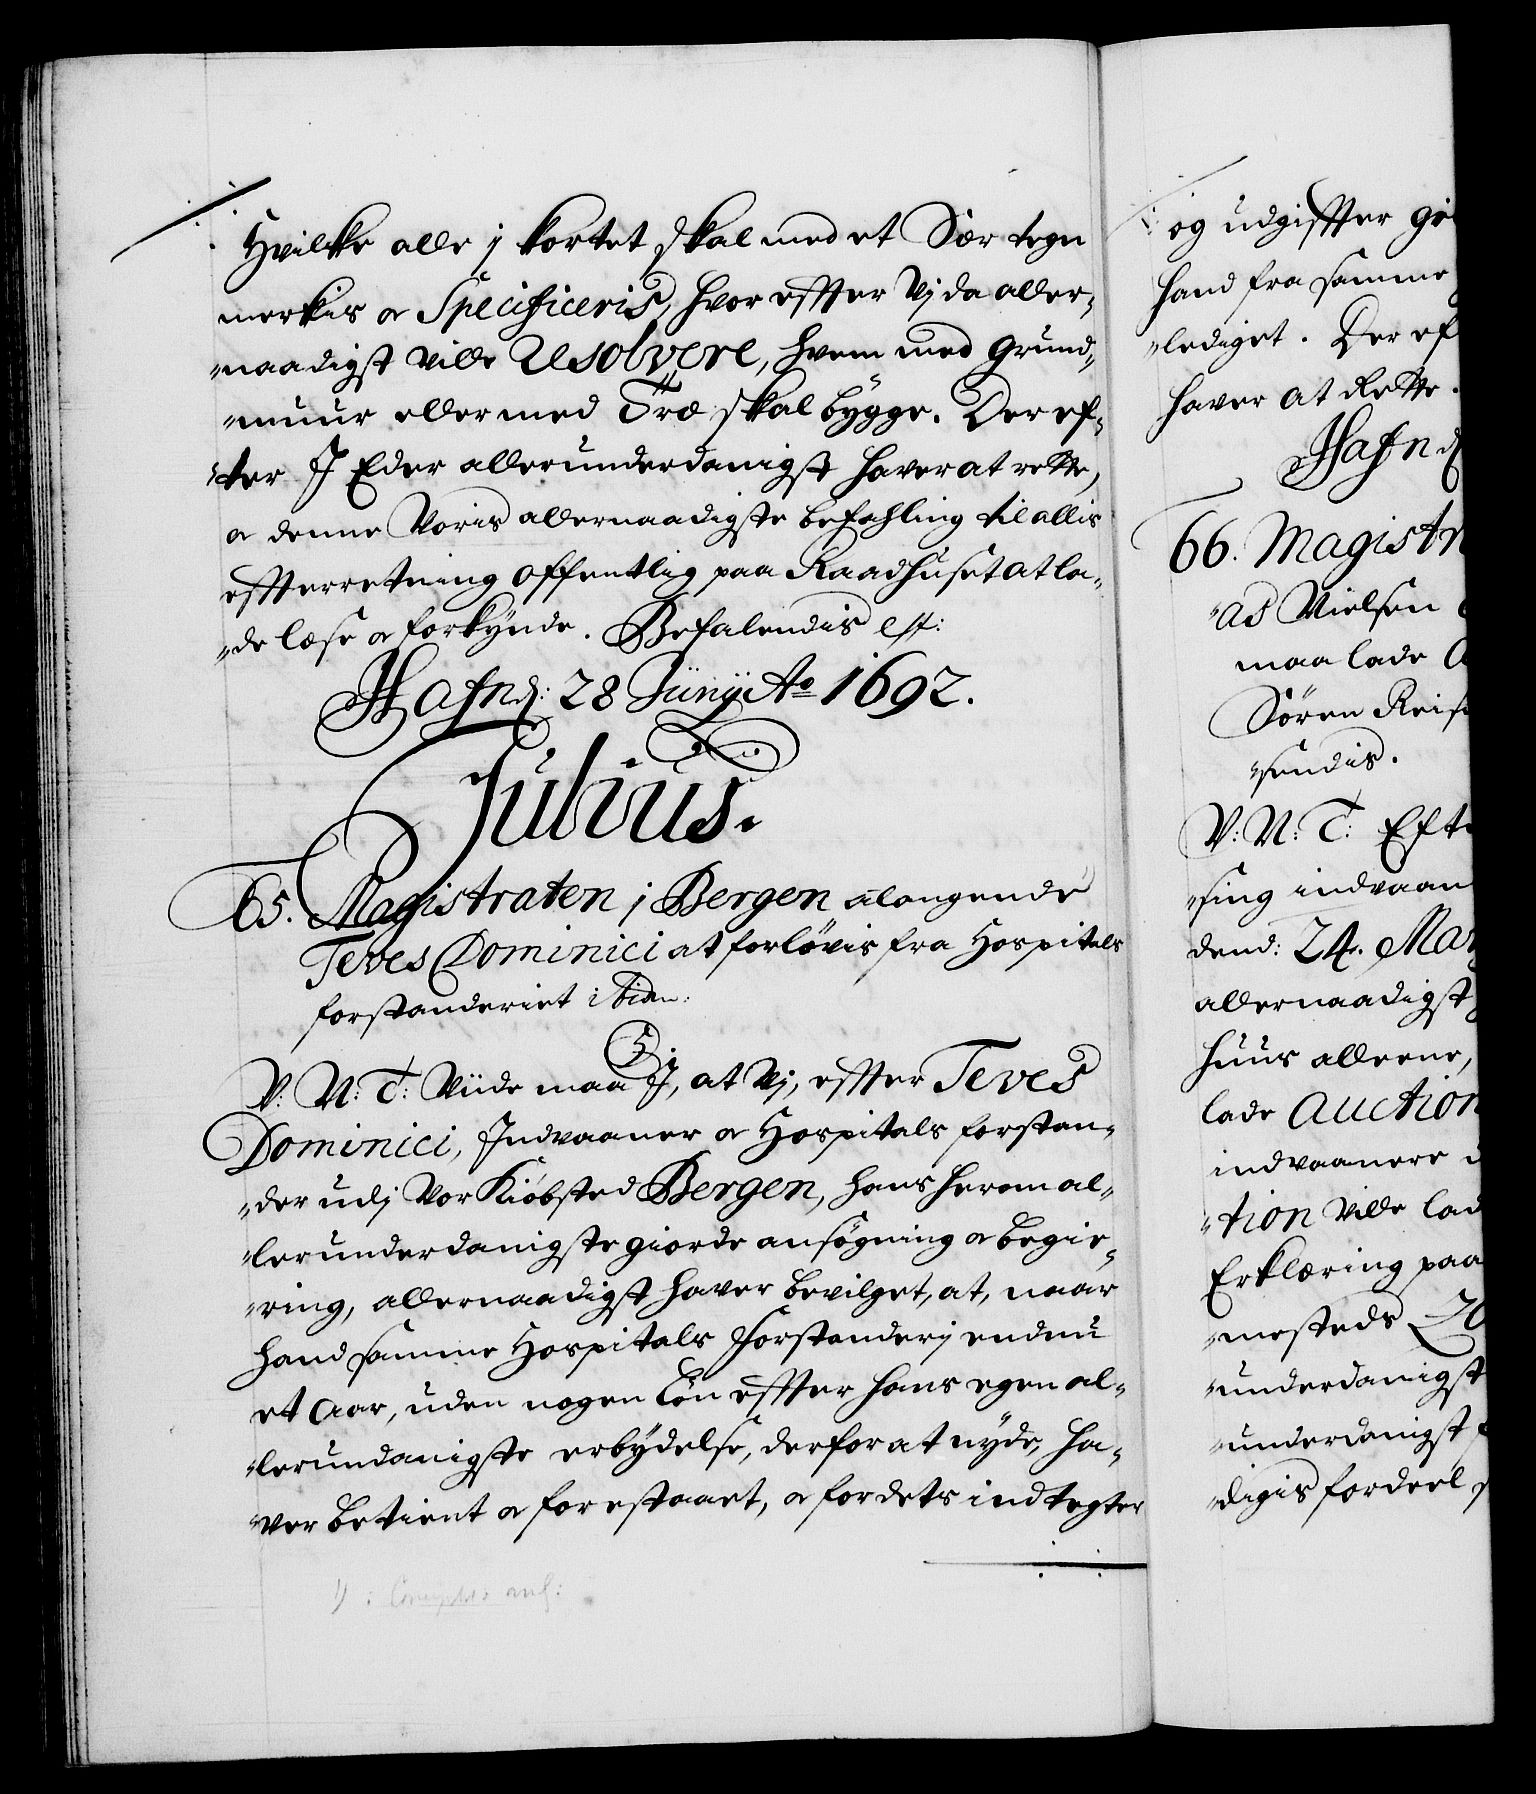 Hvilke alle j kortet skal med et Sær tegn
merkis oc Specificeris, hvor effter Vj da aller„
„naadigst ville Resolvere, hvem med Grund„
„muur eller med Træ skal bygge. Der ef„
„ter J Eder allerunderdanigst haver at rette,
oc denne Voris allernaadigste befahling til allis
effterretning offentlig paa Raadhuset at la„
„de læse oc forkynde. Befalendis est:
Hafn d: 28 Junij Ao 1692.
Julius.
65. Magistraten j Bergen anlangende
Teves Dominici at forløvis fra Hospitals
forstanderiet
V: N: T: Viide maa J, at Vj, effter Teves
Dominici, Indvaaner oc Hospitals forstan„
„der udj Vor Kiøbsted Bergen, hans herom al„
„lerunderdanigste giorde ansøgning oc begie„
„ring, allernaadigst haver bevilget, at, naar
hand samme Hospitals Forstanderj endnu
et Aar, uden nogen Løn effter hans egen al„
„lerundanigste erbydelse, derfor at nyde, ha„
„ver betient oc forestaaet, oc for dets indtegter
og udgiffter
hand fra samme
„lediget. Der ef
haver at Rette.
Hafn d
66. Magistr
„as Nielsen
maa lade
Søren
„sendis.
V: N: T: Eft
„sing indvaan
dend: 24. Mar
allernaadigst
huus alleene,
lade Auction
indvaanere
„tion ville lad
Erklæring paa
„mesteds
„underdanigst
„underdanigst
„digis fordeel